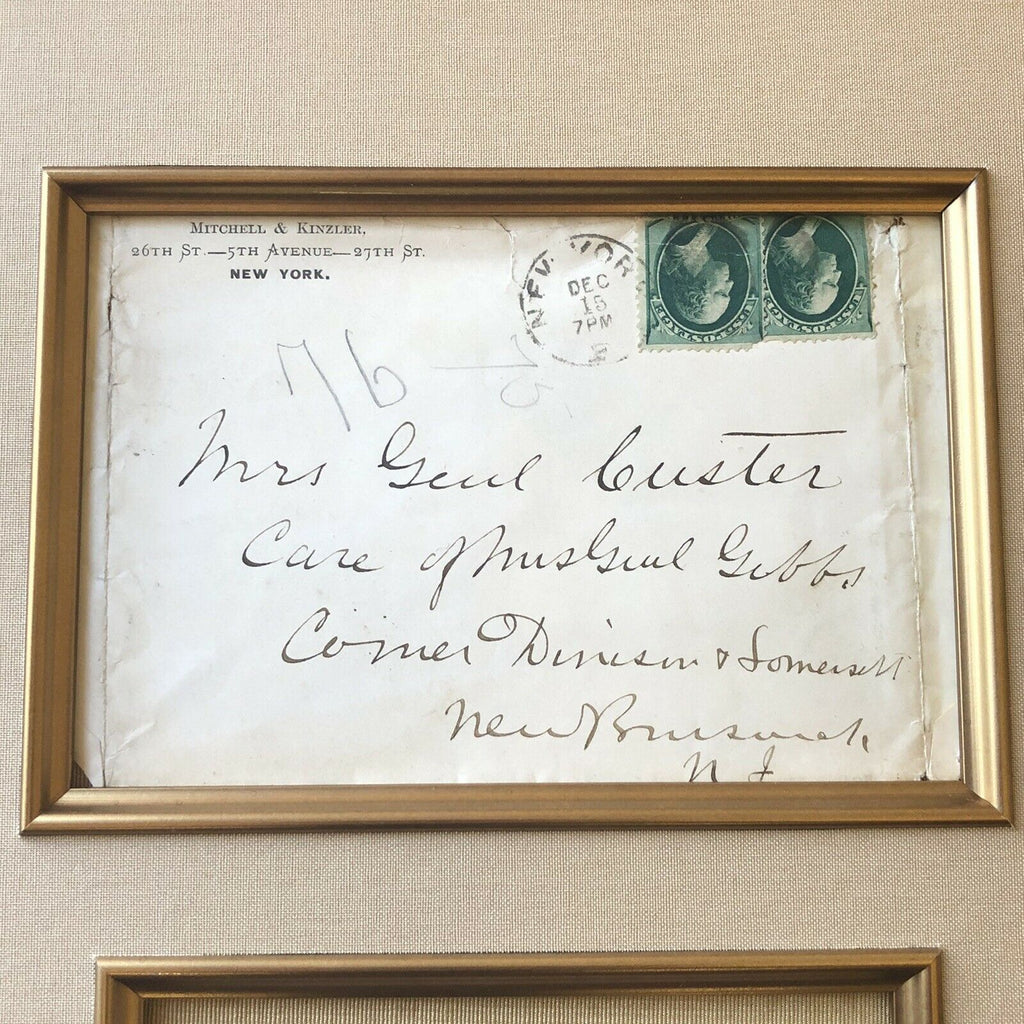 MITCHELL & KINZLER,
26TH ST.—5TH AVENUE—27TH ST.
NEW YORK.
NEW YOR
DEC
15
7PM
U.S. POSTAGE
U.S. POSTAGE
76
75
Mrs Genl Custer
Care of Mrs Genl Gibbs
Corner Division & Somersett
New Brunswick
N J